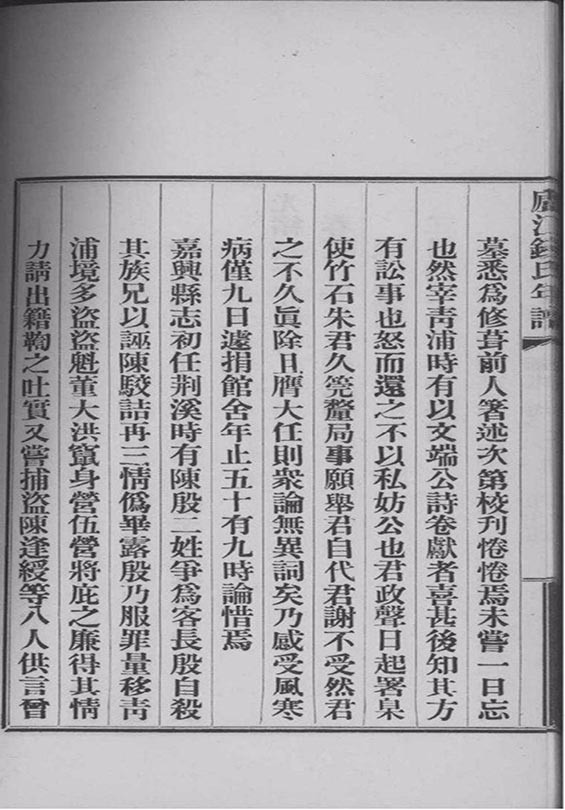 廬江錢氏年譜
墓悉爲修葺前人箸述次第校刊惓惓焉未嘗一日忘
也然宰靑浦時有以文端公詩卷獻者喜甚後知其方
有訟事也怒而還之不以私妨公也君政聲日起署臬
使竹石朱君久筦釐局事願舉君自代君謝不受然君
之不久眞除且膺大任則衆論無異詞矣乃感受風寒
病僅九日遽捐館舍年止五十有九時論惜焉
嘉興縣志初任荆溪時有陳殷二姓爭爲客長殷自殺
其族兄以誣陳駮詰再三情僞畢露殷乃服罪量移靑
浦境多盜盜魁董大洪竄身營伍營將庇之廉得其情
力請出籍鞫之吐實又嘗捕盜陳逢綬等八人供言曾